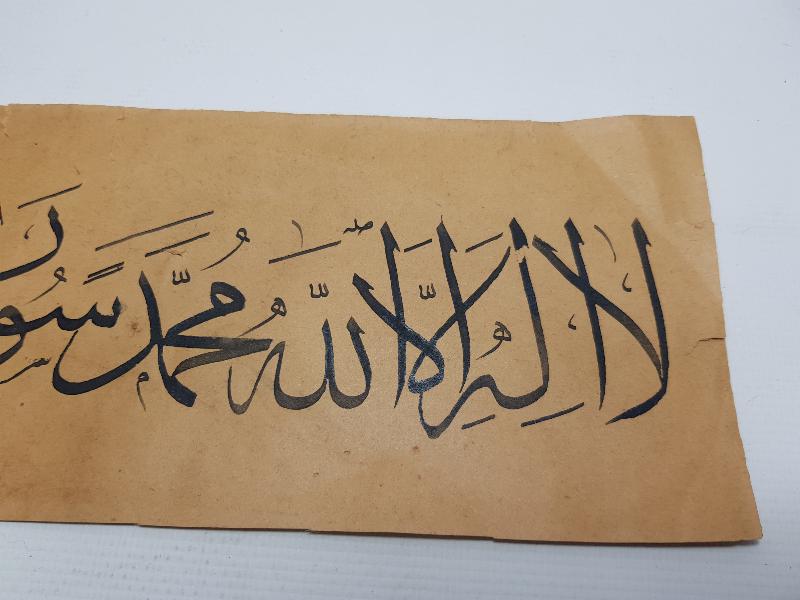 لا إله إلا الله محمد رسو